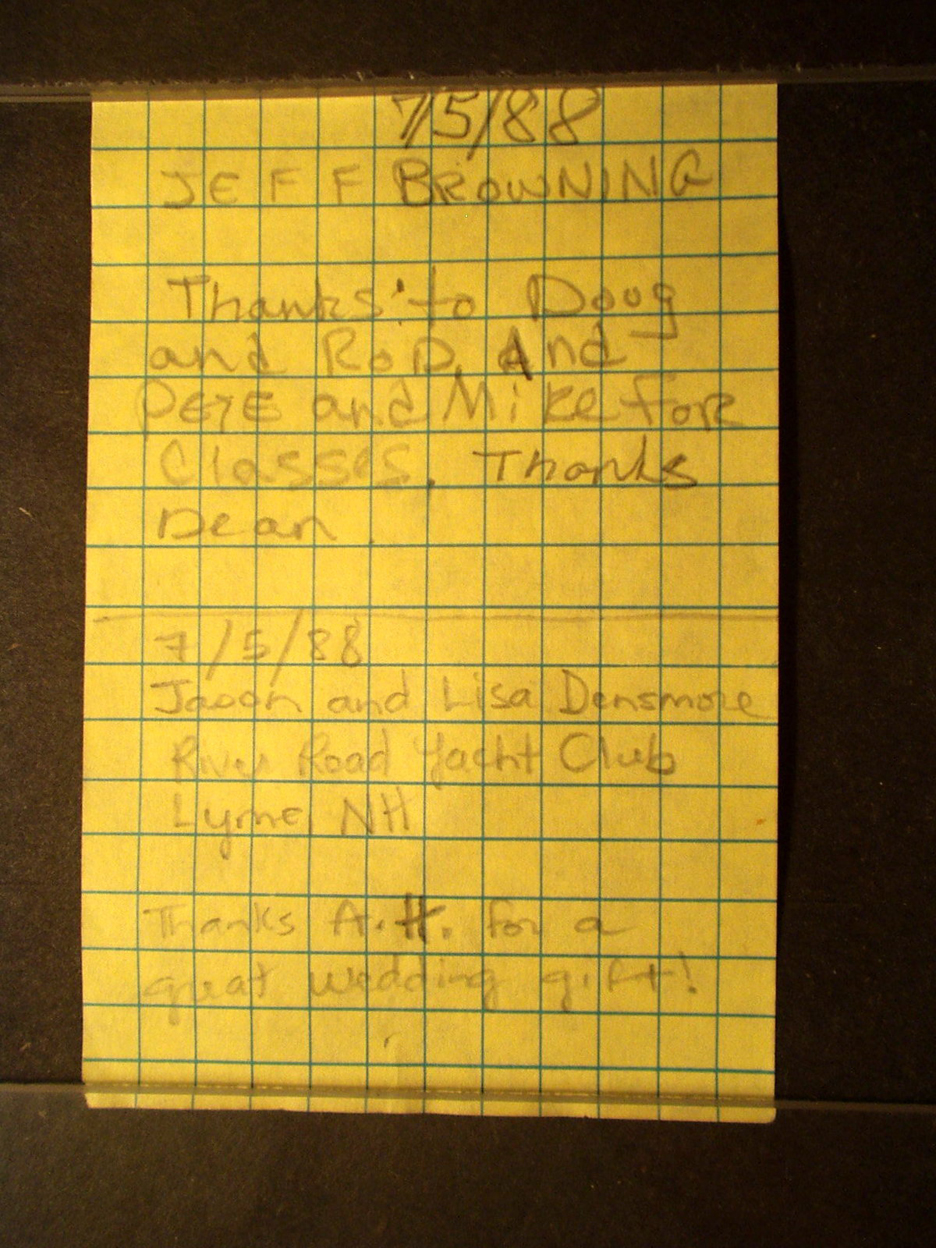 7/5/88
JEFF BROWNING
Thanks to Doug
and ROD. And
PETE and Mike for
Classes. Thanks
Dean
7/5/88
Jason and Lisa Densmore
River Road Yacht Club
Lyme, NH
Thanks A.H. for a
great wedding gift!